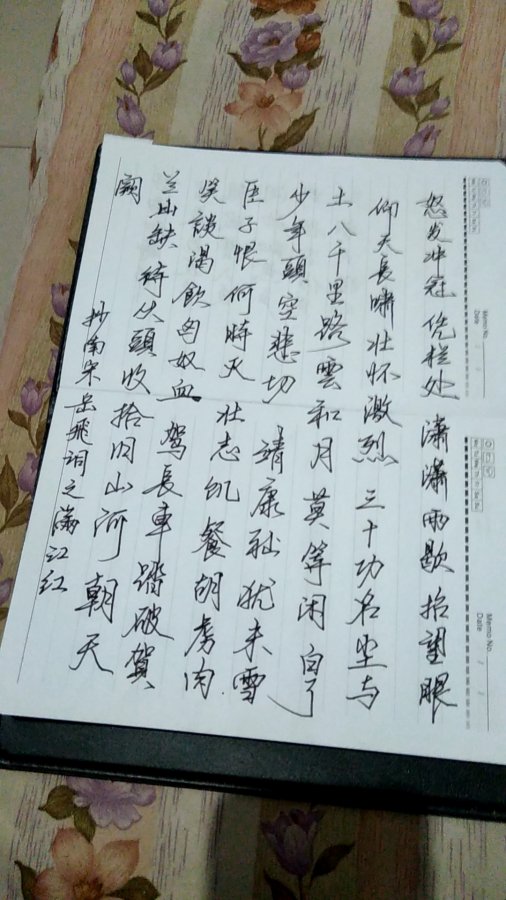 Memo No.
Date / /
Memo No.
Date / /
怒发冲冠凭栏处 潇潇雨歇抬望眼
仰天長嘯壮怀激烈 三十功名尘与
土八千里路雲和月 莫等闲白了
少年頭空悲切 靖康耻犹未雪
臣子恨何時灭 壮志飢餐胡虏肉
笑談渴飲匈奴血 駕長車踏破賀
兰山缺待从頭收拾旧山河朝天
阙
抄南宋岳飛詞之满江红